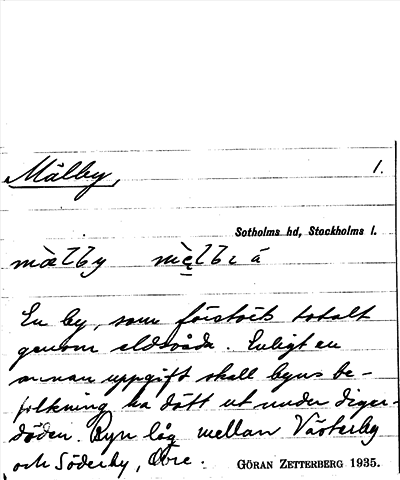 Mälby, 1.
Sotholms hd, Stockholms l.
En by, som förstörts totalt
genom eldsvåda. Enligt en
annan uppgift skall byns be-
folkning ha dött ut under diger-
döden. Byn låg mellan Västerby
och Söderby, Obre.
GÖRAN ZETTERBERG 1935.